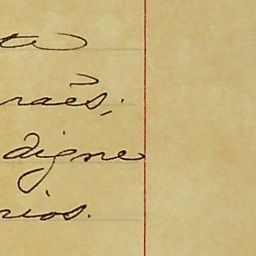 te
raēs;
digne
rios.